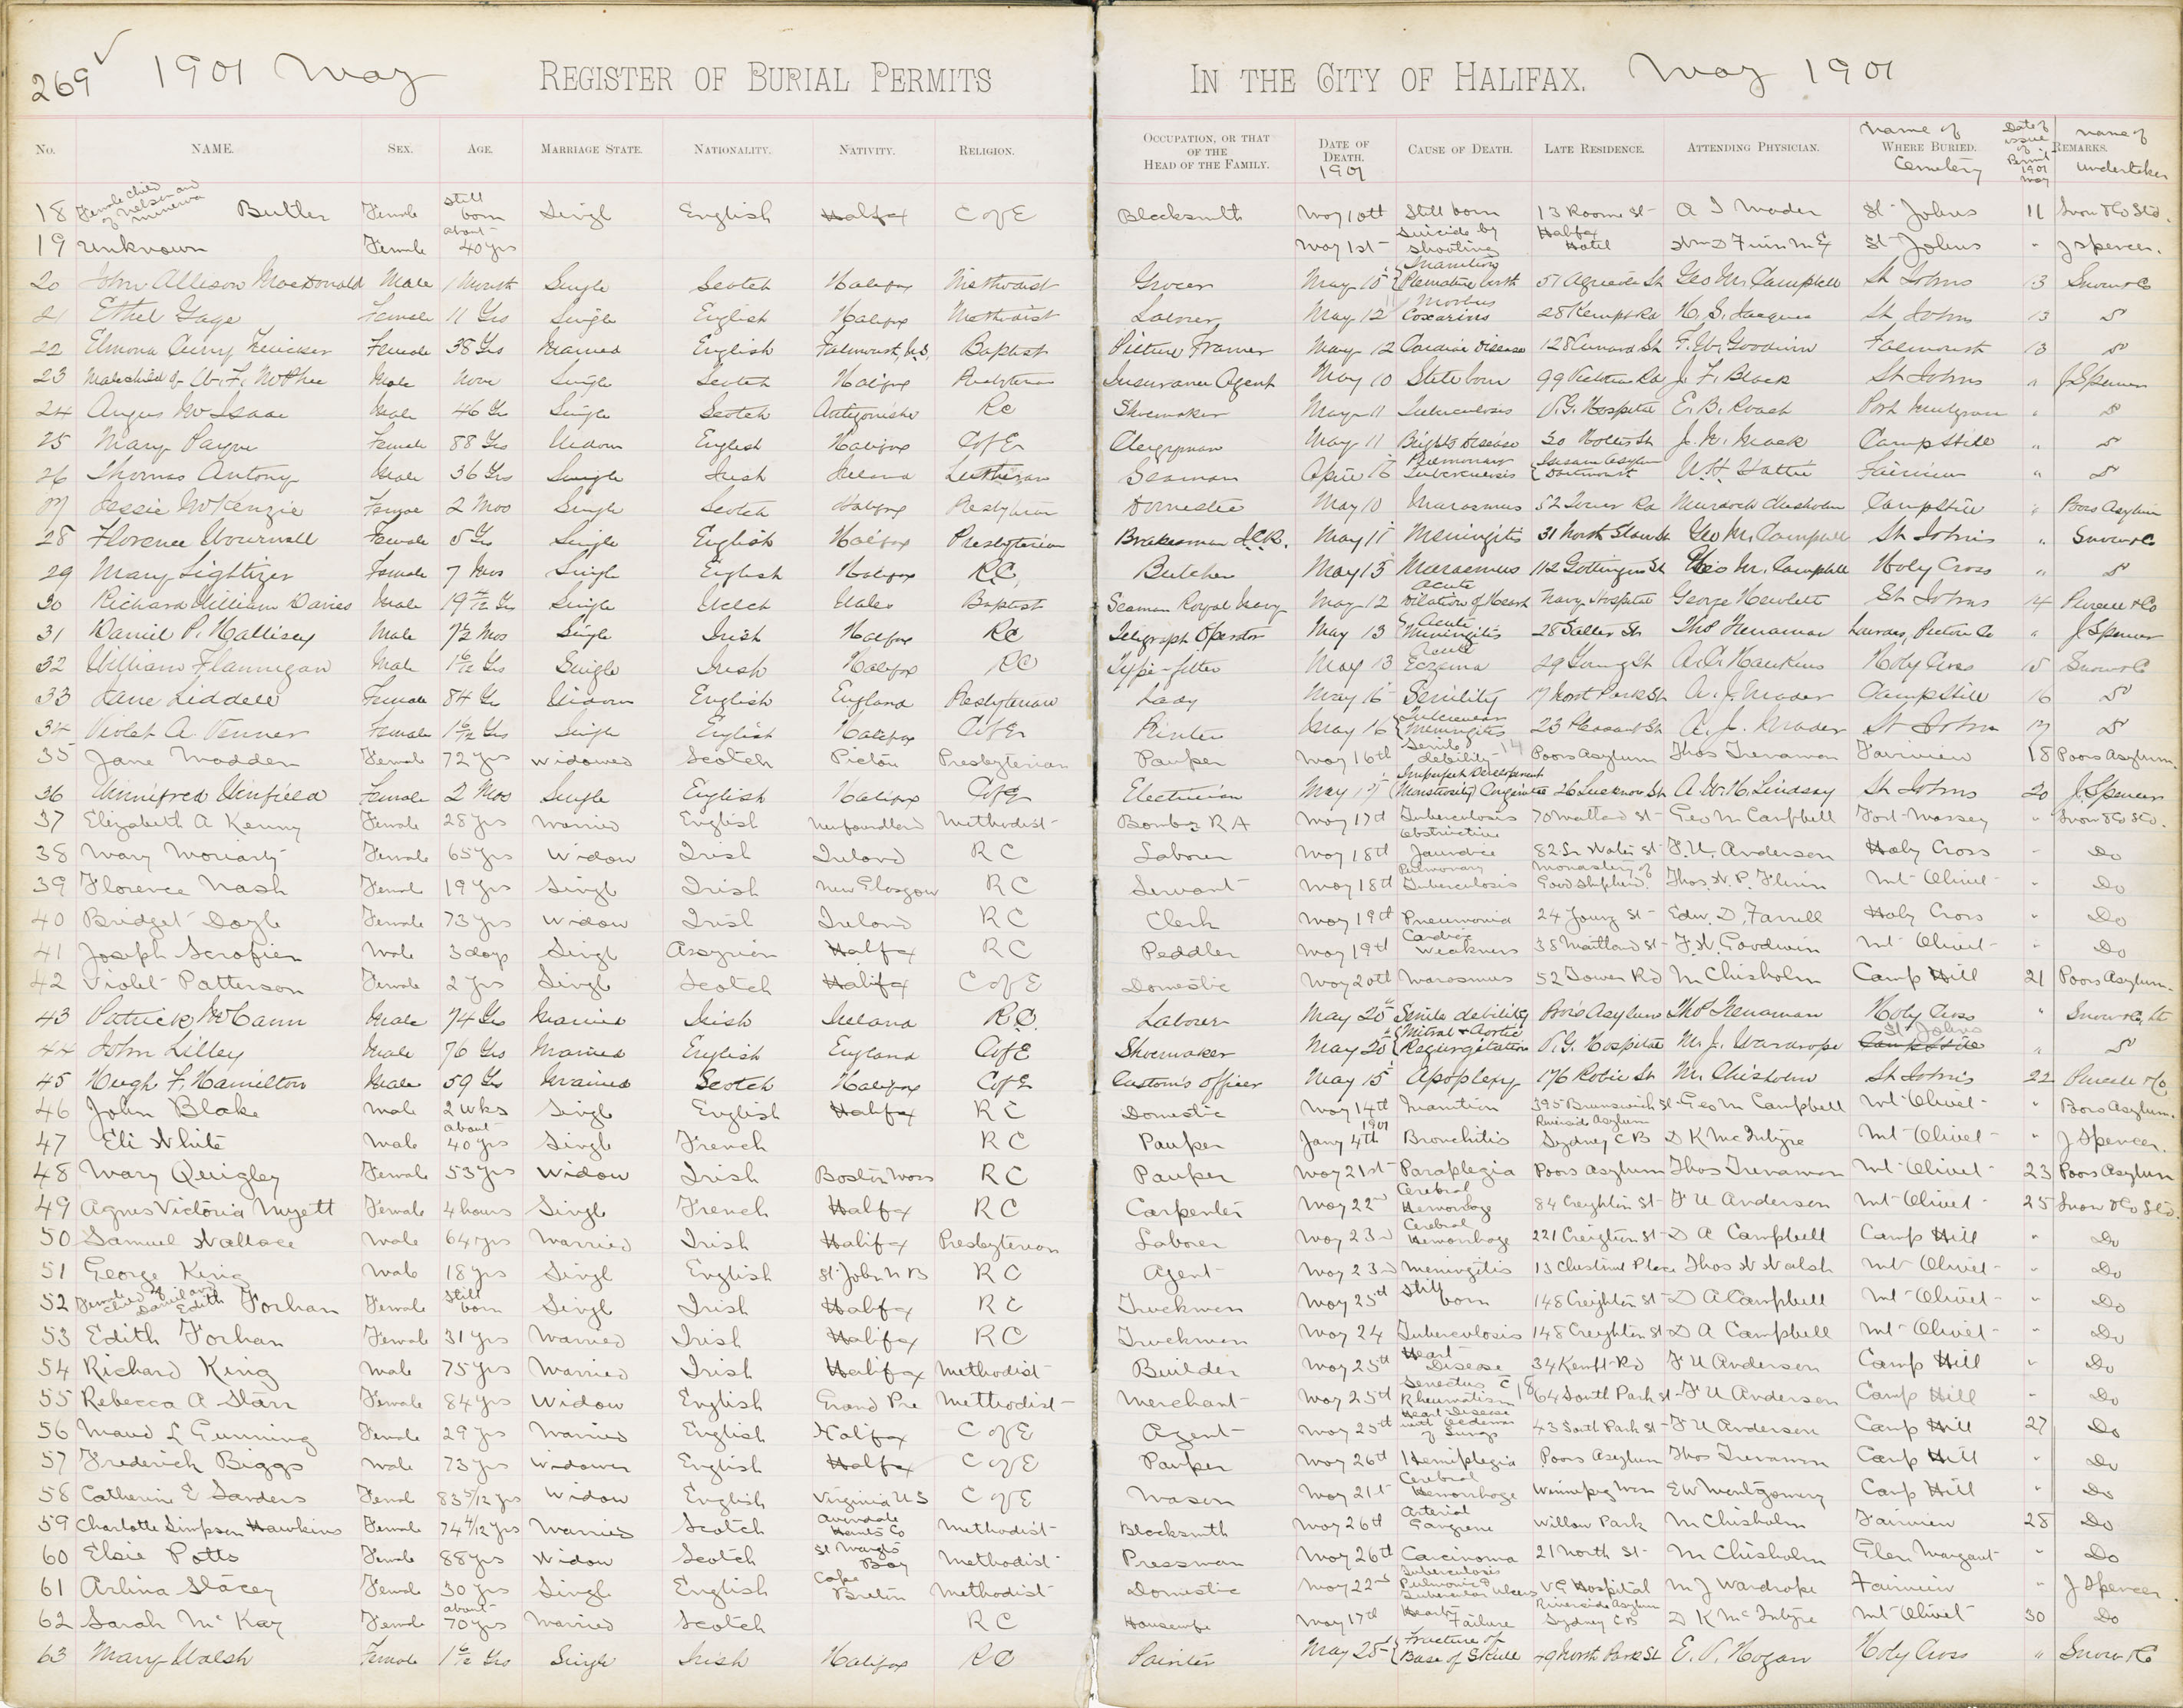 269 1901 May REGISTER OF BURIAL PERMITS IN THE CITY OF HALIFAX. May 1901
No. NAME. SEX. AGE. MARRIAGE STATE. NATIONALITY. NATIVITY. RELIGION. OCCUPATION, OR THAT OF THE HEAD OF THE FAMILY. DATE OF DEATH. 1901 CAUSE OF DEATH. LATE RESIDENCE. ATTENDING PHYSICIAN. Name of WHERE BURIED. Cemetery Date of issue of Permit 1901 May Name of REMARKS. Undertaker
18 Female child of Nelson and Minerva Butler Female Still born Singl English Halifax C of E Blacksmith May 10th Still born 13 Room St A I Mader St Johns 11 Snow & Co Ltd.
19 Unknown Female about 40 yrs May 1st Suicide by shooting Halifax Hotel Wm D Finn M E St Johns " J Spencer.
20 John Allison MacDonald Male 1 Month Single Scotch Halifax Methodist Grocer May 10 Inanition Premature birth 57 Agricola St Geo M. Campbell St Johns 13 Snow & Co
21 Ethel Gage Female 11 Yrs Single English Halifax Methodist Laborer May 12 Morbus Coxarius 28 Kempt Rd H. S. Jacques St Johns 13 "
22 Elmona Female 38 Yrs Married English Falmouth, N.S. Baptist Picture Framer May 12 Cardiac Disease 128 Cunard St F. W. Goodwin Falmouth 13 "
23 Male child of W. F. McPhee Male None Single Scotch Halifax Presbyterian Insurance Agent May 10 Still born 99 Victoria Rd J. F. Black St Johns " J Spencer
24 Angus McIsaac Male 46 Yrs Single Scotch Antigonishe RC Shoemaker May 11 Tuberculosis V.G. Hospital E. B. Roach Port Mulgrave "
25 Mary Payne Female 88 Yrs Widow English Halifax C of E Clergyman May 11 Brights Disease 30 Hollis St J. W. Camp Hill "
26 Thomas Antony Male 36 Yrs Single Irish Ireland Lutheran Seaman April 16 Pulmonary Tuberculosis Insane Asylum Dartmouth W. H. Hattie Fairview "
27 Jessie McKenzie Female 2 Mos Single Scotch Halifax Presbyterian Domestic May 10 Marasmus 52 Tower Rd Murdoch Chisholm Camp Hill " Poors Asylum
28 Florence Female 5 Yrs Single English Halifax Presbyterian Brakesman I.C.R. May 11 Meningitis 31 North Geo M. Campbell St Johns " Snow & Co
29 Mary Lightizer Female 7 Mos Single English Halifax R.C. Butcher May 13 Marasmus 112 Gottingen St Geo M. Campbell Holy Cross "
30 Richard William Davies Male 19 Yrs Single Welch Wales Baptist Seaman Royal Navy May 12 Acute Dilation of Heart Navy Hospital George Hewlett St Johns 14 Purcell & Co
31 Daniel P. Hallisey Male 7½ Mos Single Irish Halifax RC Telegraph Operator May 13 Acute Meningitis 28 Salter St Thos Trenaman Lourdes, Pictou Co " J Spencer
32 William Flannigan Male 1 6/12 Yrs Single Irish Halifax RC Type-fitter May 13 Acute Eczema 29 Young St A. C. Hawkins Holy Cross 15 Snow & Co
33 Jane Liddell Female 84 Yrs Widow English England Presbyterian Lady May 16 Senility 17 North Park St A. J. Mader Camp Hill 16 "
34 Violet A. Venner Female 1 6/12 Yrs Single English Halifax C of E Printer May 16 Tubercular Meningitis 23 Pleasant St A. J. Mader St Johns 17 "
35 Jane Madden Female 72 yrs Widowed Scotch Pictou Presbyterian Pauper May 16th Senile debility Poors Asylum Thos Trenaman Fairview 18 Poors Asylum.
36 Winnifred Winfield Female 2 Mos Single English Halifax C of E Electrician May 17 Imperfect Development (Monstrosity) Congenital 26 Lucknow St A. W. H. Lindsay St Johns 20 J. Spencer
37 Elizabeth A Kenny Female 28 yrs Married English Newfoundland Methodist Bombr R A May 17th Tuberculosis 70 Maitland St Geo M Campbell Fort Massey " Snow & Co Ltd.
38 Mary Moriarty Female 65 yrs Widow Irish Ireland R C Laborer May 18th Obstructive Jaundice 82 Lr Water St F. U. Anderson Holy Cross " Do
39 Florence Nash Female 19 yrs Singl Irish New Glasgow R C Servant May 18th Pulmonary Tuberculosis Monastery of Good Shepherd. Thos. W. P. Flinn Mt Olivet " Do
40 Bridget Doyle Female 73 yrs Widow Irish Ireland R C Clerk May 19th Pneumonia 24 Young St Edw. D. Farrell Holy Cross " Do
41 Joseph Scrofien Male 3 days Singl Assyrien Halifax R C Peddler May 19th Cardiac Weakness 35 Maitland St F. W. Goodwin Mt Olivet " Do
42 Violet Patterson Female 2 yrs Singl Scotch Halifax C of E Domestic May 20th Marasmus 52 Tower Rd M Chisholm Camp Hill 21 Poors Asylum.
43 Patrick McCann Male 74 Yrs Married Irish Ireland R.C. Laborer May 20 Senile debility Poors Asylum Thos Trenaman Holy Cross " Snow & Co
44 John Lilley Male 76 Yrs Married English England C of E Shoemaker May 20 Mitral & Aortic Regurgitation V. G. Hospital M. J. Wardrope St Johns Camp Hill "
45 Hugh F. Hamilton Male 59 Yrs Married Scotch Halifax C of E Customs Officer May 15 Apoplexy 176 Robie St M. Chisholm St Johns 22 Purcell & Co.
46 John Blake Male 2 wks Singl English Halifax R C Domestic May 14th Inanition 395 Brunswick St Geo M Campbell Mt Olivet " Poors Asylum.
47 Eli White Male about 40 yrs Singl French R C Pauper Jany 4th 1901 Bronchitis Riverside Asylum Sydney C B D K McIntyre Mt Olivet " J Spencer.
48 Mary Quigley Female 53 yrs Widow Irish Boston Mass R C Pauper May 21st Paraplegia Poors Asylum Thos Trenaman Mt Olivet 23 Poors Asylum
49 Agnes Victoria Myett Female 4 hours Singl French Halifax R C Carpenter May 22nd Cerebral Hemorrhage 84 Creighton St F U Anderson Mt Olivet 25 Snow & Co Ltd.
50 Samuel Wallace Male 64 yrs Married Irish Halifax Presbyterian Laborer May 23d Cerebral Hemorrhage 221 Creigtion St D A Campbell Camp Hill " Do
51 George King Male 18 yrs Singl English St John N B R C Agent May 23d Meningitis 13 Chestnut Place Thos W Walsh Mt Olivet " Do
52 Female child of Daniel and Edith Forhan Female Still born Singl Irish Halifax R C Truckman May 25th Still born 148 Creighton St D A Campbell Mt Olivet " Do
53 Edith Forhan Female 31 yrs Married Irish Halifax R C Truckman May 24 Tuberculosis 148 Creighton St D A Campbell Mt Olivet " Do
54 Richard King Male 75 yrs Married Irish Halifax Methodist Builder May 25th Heart Disease 34 Kempt Rd F U Anderson Camp Hill " Do
55 Rebecca A Starr Female 84 yrs Widow English Grand Pre Methodist Merchant May 25th Senectus c Rheumatism 64 South Park St F U Anderson Camp Hill " Do
56 Maud L Gunning Female 29 yrs Married English Halifax C of E Agent May 25th Heart Disease with Oedema of Lungs 43 South Park St F U Anderson Camp Hill 27 Do
57 Frederick Biggs Male 73 yrs Widower English Halifax C of E Pauper May 26th Hemiplegia Poors Asylum Thos Trenaman Camp Hill " Do
58 Catherine E Sanders Femal 83 5/12 yrs Widow English Virginia U S C of E Mason May 21st Cerebral Hemorrhage Winnipeg Man E W Montgomery Camp Hill " Do
59 Charlotte Simpson Hawkins Female 74 4/12 yrs Married Scotch Avondale Hants Co Methodist Blacksmith May 26th Arterial Gangrene Willow Park M Chisholm Fairview 28 Do
60 Elsie Potts Female 88 yrs Widow Scotch St Margts Bay Methodist Pressman May 26th Carcinoma 21 North St M Chisholm Glen Margaret " Do
61 Arlina Stacey Female 30 yrs Singl English Cape Breton Methodist Domestic May 22nd Tuberculosis Pulmonic & Tubercular Ulcers V G Hospital M J Wardrope Fairview " J Spencer.
62 Sarah McKay Female about 70 yrs Married Scotch R C Housewife May 17th Heart Failure Riverside Asylum Sydney C B D K McIntyre Mt Olivet 30 Do
63 Mary Walsh Female 1 6/12 Yrs Single Irish Halifax RC Painter May 28 Fracture of Base of Skull 49 North Park St E. V. Hogan Holy Cross " Snow & Co